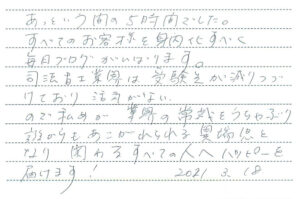 あっという間の5時間でした。
すべてのお客様を身内化すべく
毎日ブログがんばります。
司法書士業界は受験生が減りつづ
けており 活気がない。
ので私めが 業界の常識をうちやぶり
誰からもあこがれられる異端児と
なり 関わるすべての人へハッピーを
届けます！ 2021 3.18